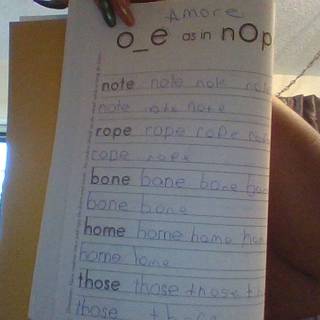 Amore
o_e as in nOp
note note note no
note note note
rope rope rope ro
rope rope
bone bone bone bo
bone bone
home home home hom
home home
those those those th
those tho